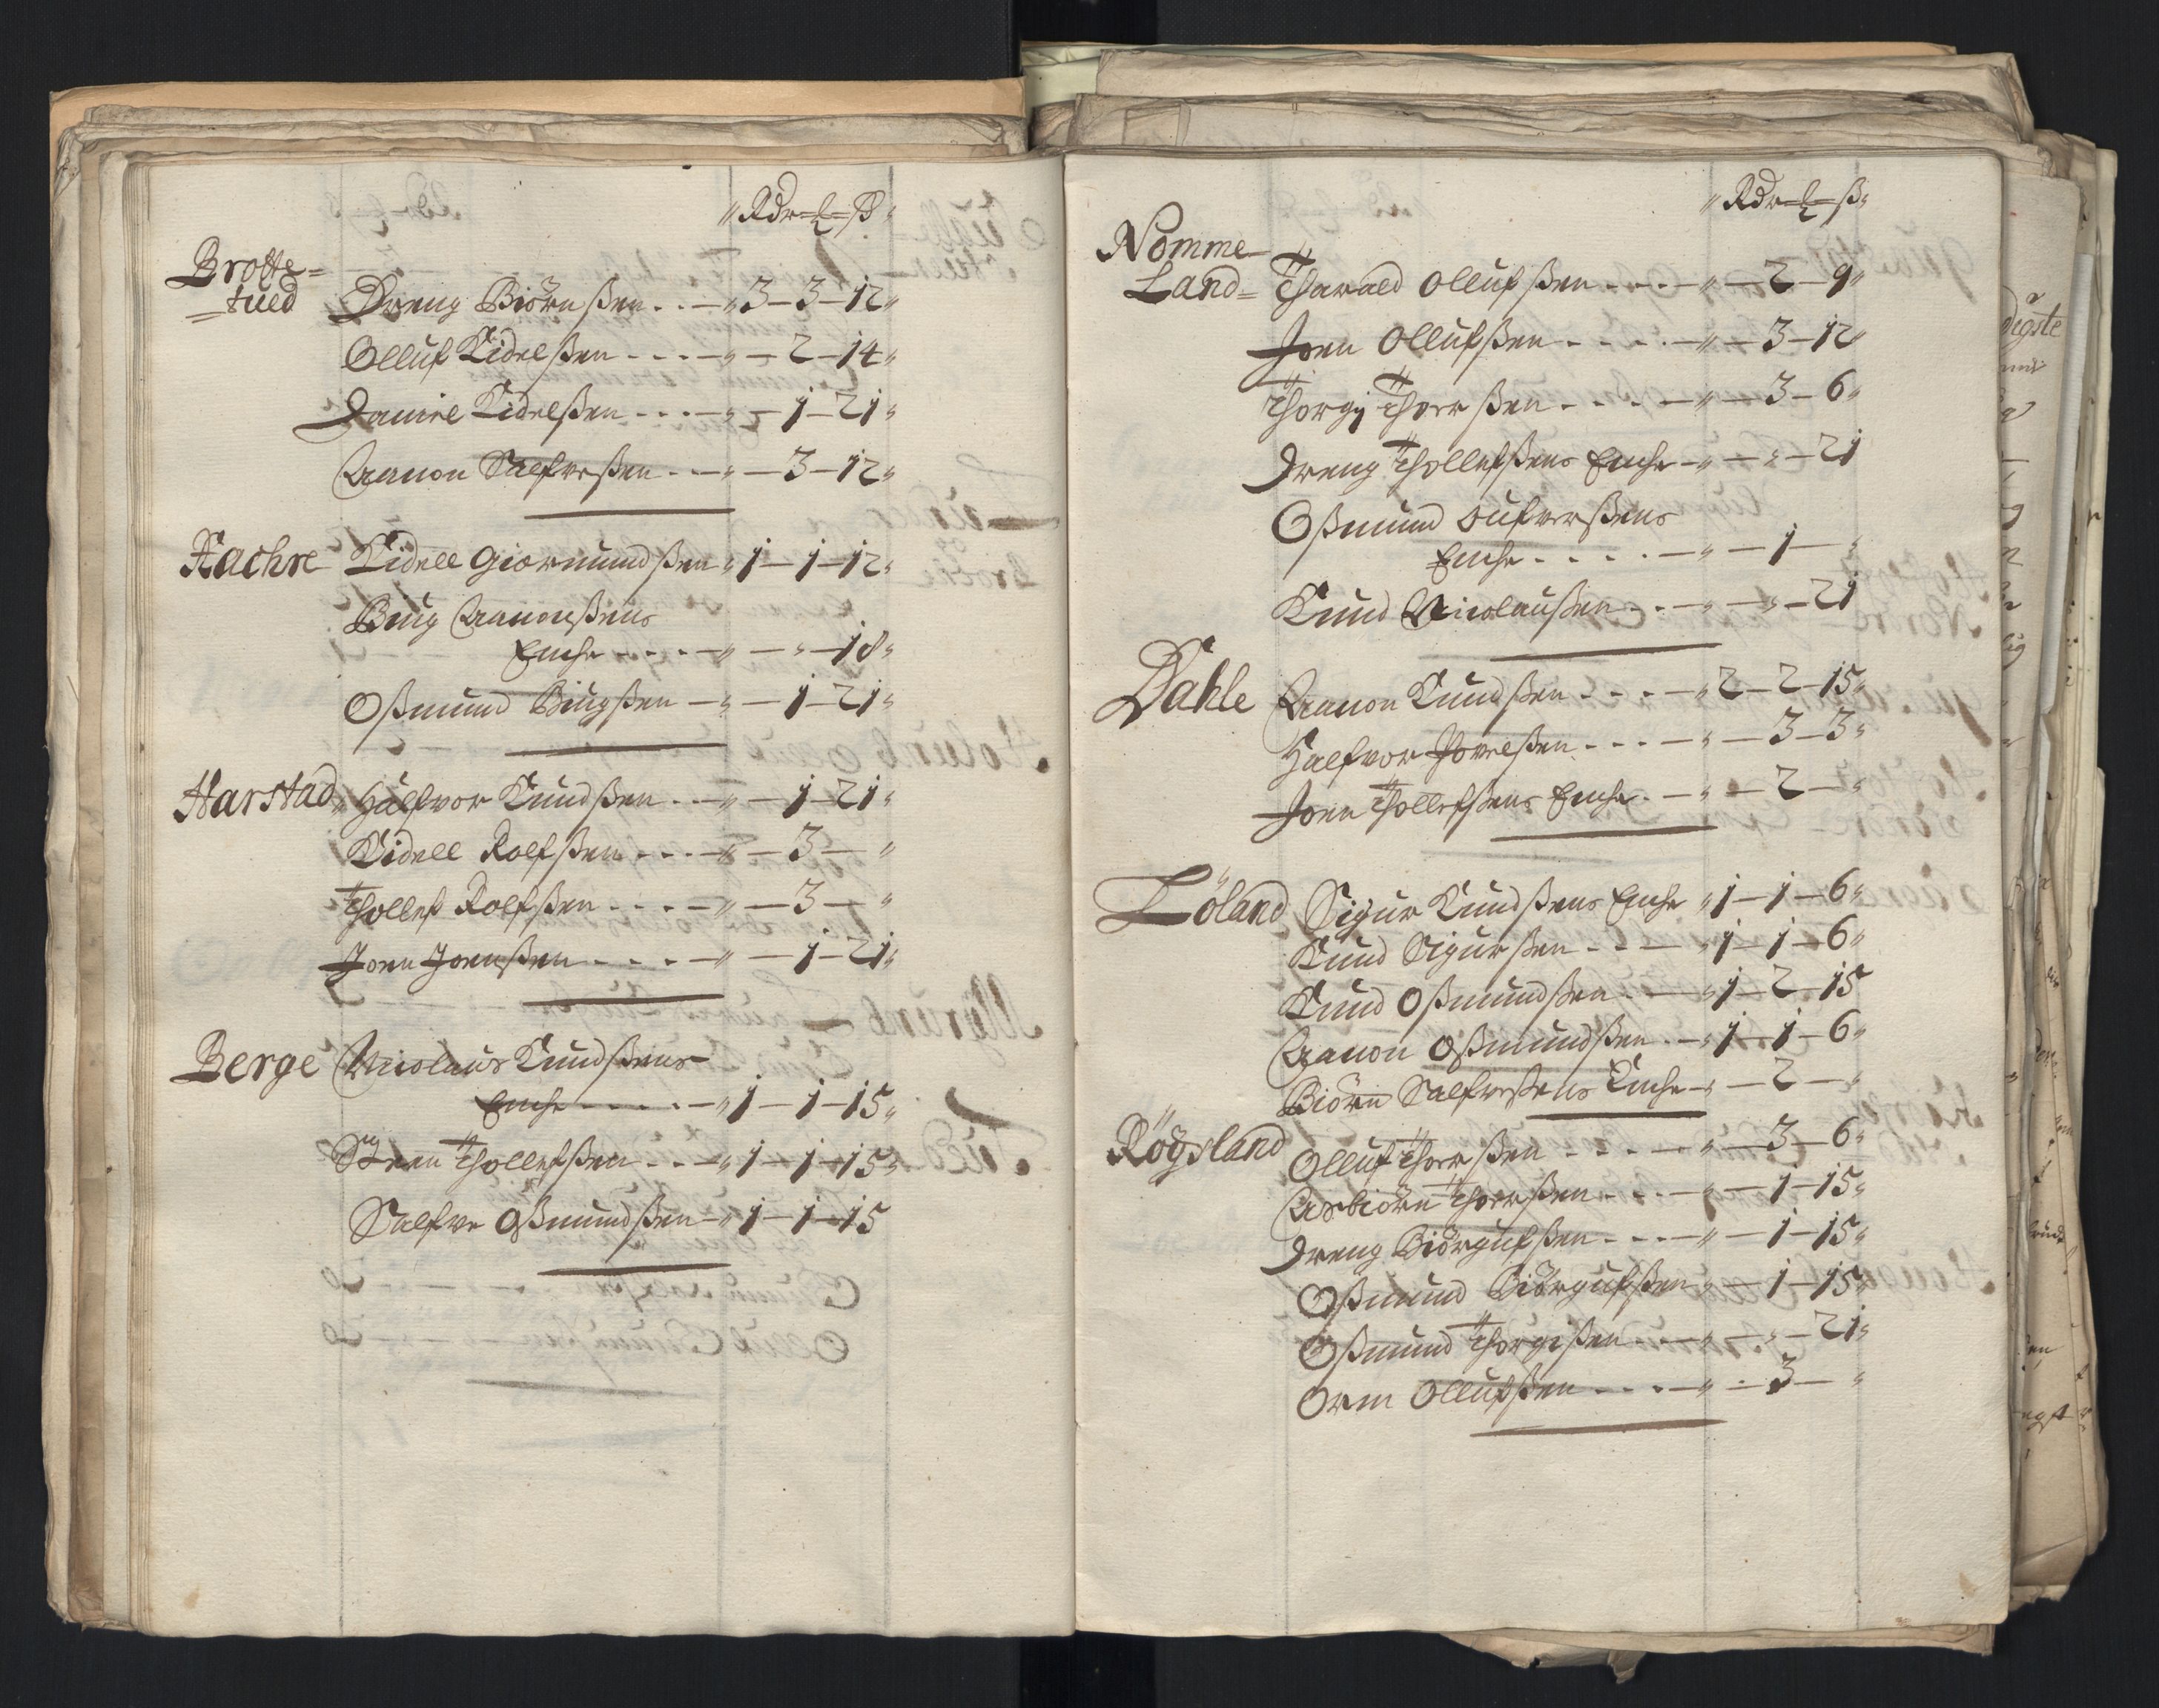 " Rdr - ß "
Brotte=
=tued Dreng Biörnßen . . — " 3 — 3 — 12 "
Olluf Kidelßen - - - — " — 2 — 14 "
Daniel Kidelßen - - - — " — 1 — 21 "
Aanon Salfveßen - - — " — 3 — 12 "
Kachre Kidell Giermundßen " 1 — 1 — 12 "
Biug Aanonßens
Enche - - - - — " — " — 18 "
Oßmund Biugßen — " — 1 — 21 "
Harstad " Halfvor Knudßen . . — " — 1 — 21 "
Kidell Rolfßen - - - — " — 3 — "
Thollef Rolfßen - - - - — " — 3 — "
Joen Joenßen - - - - — " — 1 — 21 "
Berge Nicolaus Knudßens
Enche - - - - — " 1 — 1 — 15 "
Thollefßen - - - — " 1 — 1 — 15 "
Salfve Oßmundßen — " 1 — 1 — 15
" Rdr - ß "
Nomme-
Land= Tharald Ollufßen - - - - — " — 2 — 9 "
Joen Ollufßen - - - - — " — 3 — 12 "
Thorgj Thorßen - - - - — " — 3 — 6 "
Dreng Thollefßens Enche — " — " — 21
Oßmund ßens
Enche - - - - — " — 1 — "
Knud Nicolaußen - - — " — " — 21
Dahle Aanon Knudßen - - - - — " 2 — 2 — 15 "
Halfvor ßen - - - — " — 3 — 3 "
Joen Thollefßens Enche - — " — 2 — "
Löland Sigur Knudßens Enche " 1 — 1 — 6 "
Knud Sigurßen - - - — " 1 — 1 — 6 "
Knud Oßmundßen - — " 1 — 2 — 15
Aanon Oßmundßen - — " 1 — 1 — 6 "
Biörn Salfveßens Enche — " — 2 — "
Rögsland Olluf Thorßen - - - - — " — 3 — 6 "
Asbiörn Thorßen - - - — " — 1 — 15 "
Dreng Biörgufßen - - - — " — 1 — 15 "
Oßmund Biörgufßen " — 1 — 15 "
Oßmund Thorgißen - - — " — " — 21 "
Orm Ollufßen - - - - — " - 3 — "